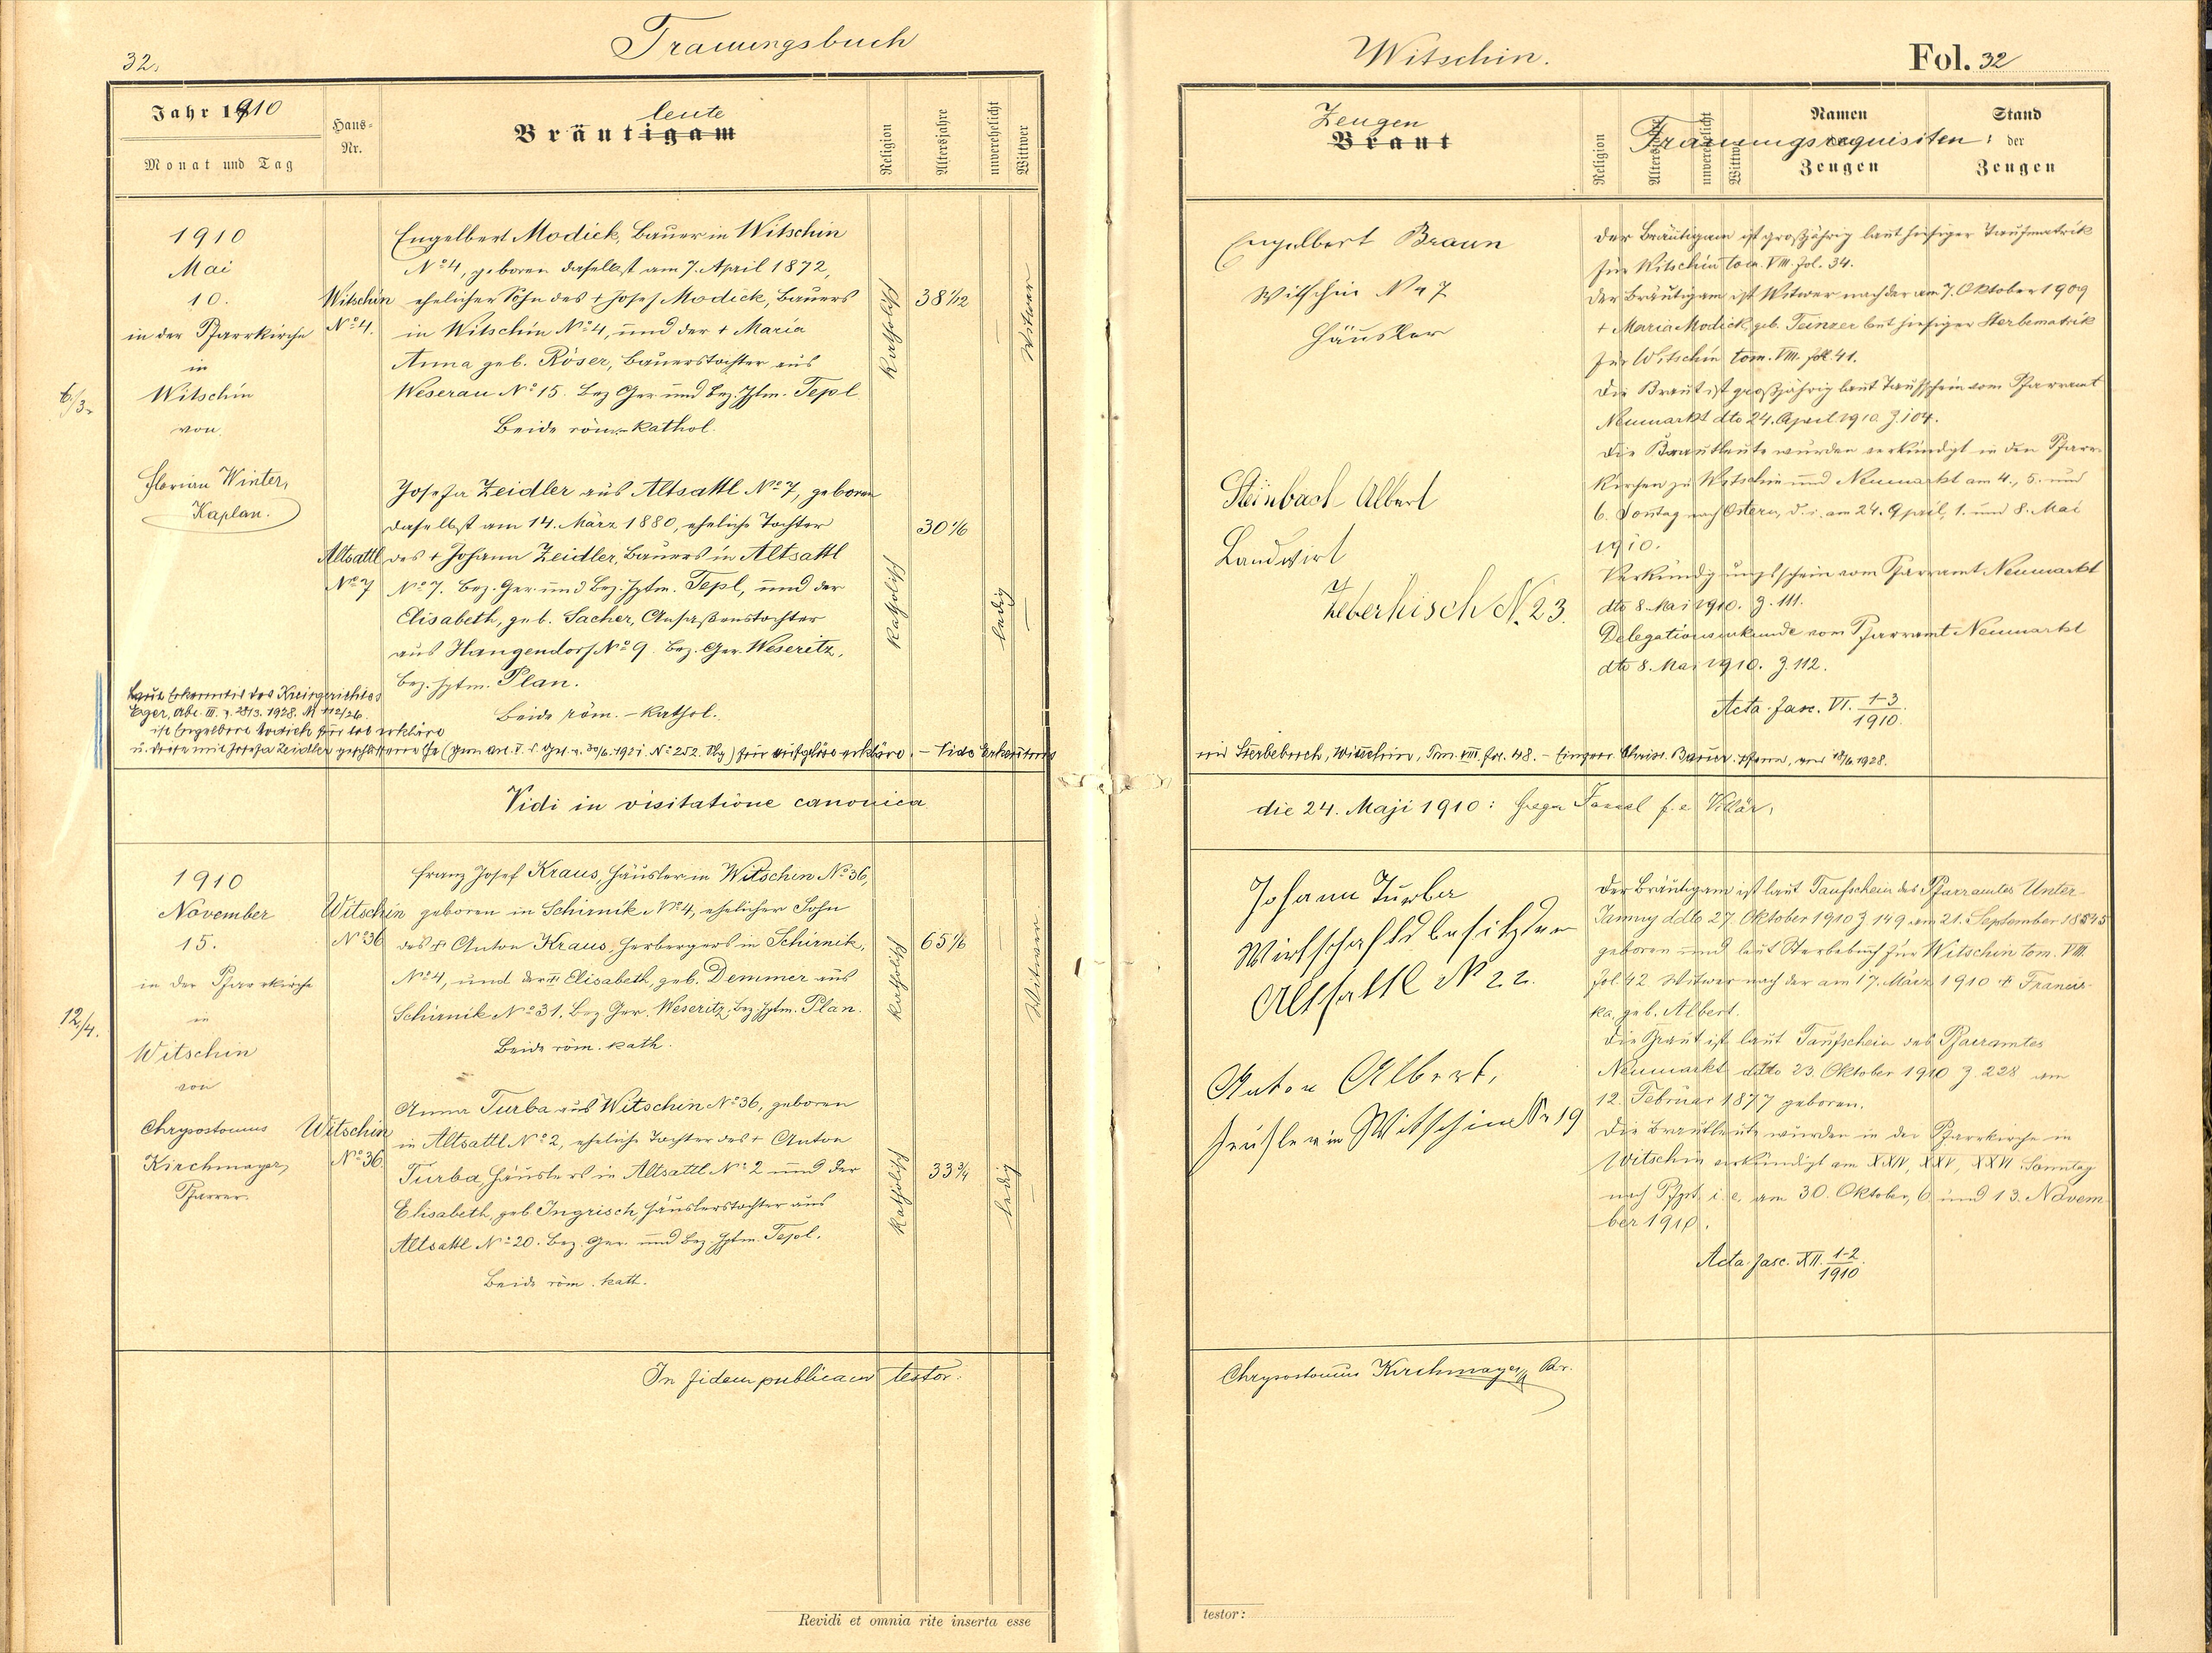 32.
Trauungsbuch
Jahr 1910
Monat und Tag
Haus-
Nr.
Bräutigam
leute
Religion
Altersjahre
unverehelicht
Wittwer
1910
Mai
10.
in der Pfarrkirche
in
Witschin
von
Florian Winter,
Kaplan.
6/3.
Witschin
No 4.
Engelbert Modick, Bauer in Witschin
No 4, geboren daselbst am 7. April 1872,
ehelicher Sohn des + Josef Modick, Bauers
in Witschin No 4, und der + Maria
Anna geb. Röser, Bauerstochter aus
Weserau No 15. Bez. Ger. und Bez. Hptm. Tepl
Beide röm.-kathol.
Katholisch
38 1/12
Witwer
Altsattl
No 7
Josefa Zeidler aus Altsattl No 7, geboren
daselbst am 14. März 1880, eheliche Tochter
des + Johann Zeidler, Bauers in Altsattl
No 7. Bez. Ger. und Bez. Hptm. Tepl, und der
Elisabeth, geb. Sacher, Ansaßenstochter
aus Hangendorf No 9. Bez. Ger. Weseritz,
Bez. Hptm. Plan.
Beide röm.-kathol.
Katholisch
30 1/6
ledig
Laut Erkenntnis des Kreisgerichtes
Eger, Abt. III. v. 28/3. 1928.
ist Engelbert Modick für tot erklärt
u. dessen mit Josefa Zeidler geschlossene Ehe für aufgelöst erklärt. –
Vidi in visitatione canonica
1910
November
15.
in der Pfarrkirche
in
Witschin
von
Chrysostomus
Kirchmayer,
Pfarrer.
12/4.
Witschin
No 36
Franz Josef Kraus, Häusler in Witschin No 36,
geboren in Schirnik No 4, ehelicher Sohn
des + Anton Kraus, Herbergers in Schirnik,
No 4, und der + Elisabeth, geb. Demmer aus
Schirnik No 31. Bez. Ger. Weseritz, Bez. Hptm. Plan.
Beide röm. kath.
Katholisch
65 1/6
Witwer
Witschin
No 36.
Anna Turba aus Witschin No 36, geboren
in Altsattl No 2, eheliche Tochter des + Anton
Turba, Häuslers in Altsattl No 2 und der
Elisabeth, geb. Ingrisch, Häuslerstochter aus
Altsattl No 20. Bez. Ger. und Bez. Hptm. Tepl.
Beide röm. kath.
Katholisch
33 3/4
ledig
In fidem publicam testor:
Revidi et omnia rite inserta esse
Witschin.
Fol. 32
Zeugen
Braut
Religion
Altersjahre
unverehelicht
Wittwe
Trauungsrequisiten:
Namen
der
Zeugen
Stand
der
Zeugen
Engelbert Braun
Witschin No 47
Häusler
Steinbach Albert
Landwirt
Zeberhisch N. 23.
Der Bräutigam ist großjährig laut hiesiger Taufmatrik
für Witschin tom. VIII. fol. 34.
Der Bräutigam ist Witwer nach der am 7. Oktober 1909
+ Maria Modick, geb. Teinzer laut hiesiger Sterbematrik
für Witschin tom. VIII. fol. 41.
Die Braut ist großjährig laut Taufschein vom Pfarramt
Neumarkt dto 24. April 1910. Z. 104.
Die Brautleute wurden verkündigt in den Pfarr-
kirchen zu Witschin und Neumarkt am 4., 5. und
6. Sontag nach Ostern, d. i. am 24. April, 1. und 8. Mai
1910.
Verkündigungsschein vom Pfarramt Neumarkt
dto 8. Mai 1910. Z. 111.
Delegationsurkunde vom Pfarramt Neumarkt
dto 8. Mai 1910. Z. 112.
Acta fasc. VI. 1-3/1910.
im Sterbebuch, Witschin, Tom. VIII. fol. 48. –
die 24. Maji 1910: f. e. Vikär.
Johann Turba
Wirtschaftsbesitzer
Altsattl No 22.
Anton Albert,
Häusler in Witschin Nr 19
Der Bräutigam ist laut Taufschein des Pfarramtes Unter-
Jamny ddto 27. Oktober 1910 Z. 149 am 21. September 1845
geboren und laut Sterbebuch für Witschin tom. VIII.
fol. 42. Witwer nach der am 17. März 1910 + Francis-
ka, geb. Albert.
Die Braut ist laut Taufschein des Pfarramtes
Neumarkt ddto 23. Oktober 1910 Z. 228 am
12. Februar 1877 geboren.
Die Brautleute wurden in der Pfarrkirche in
Witschin verkündigt am XXIV, XXV, XXVI. Sonntag
nach Pfgst. i. e. am 30. Oktober, 6. und 13. Novem-
ber 1910.
Acta fasc. XII. 1-2/1910.
Chrysostomus Kirchmayer Pfr.
testor: